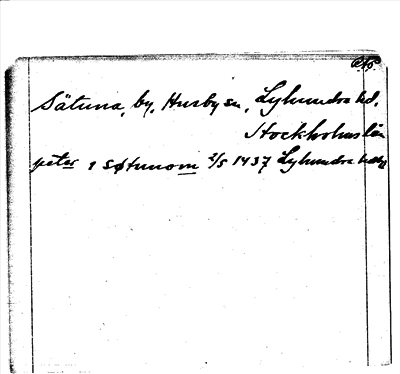 Sätuna, by, Husby sn, Lyhundra hd,
Stockholms län
peter i søtunom 2/5 1437 Lyhundra